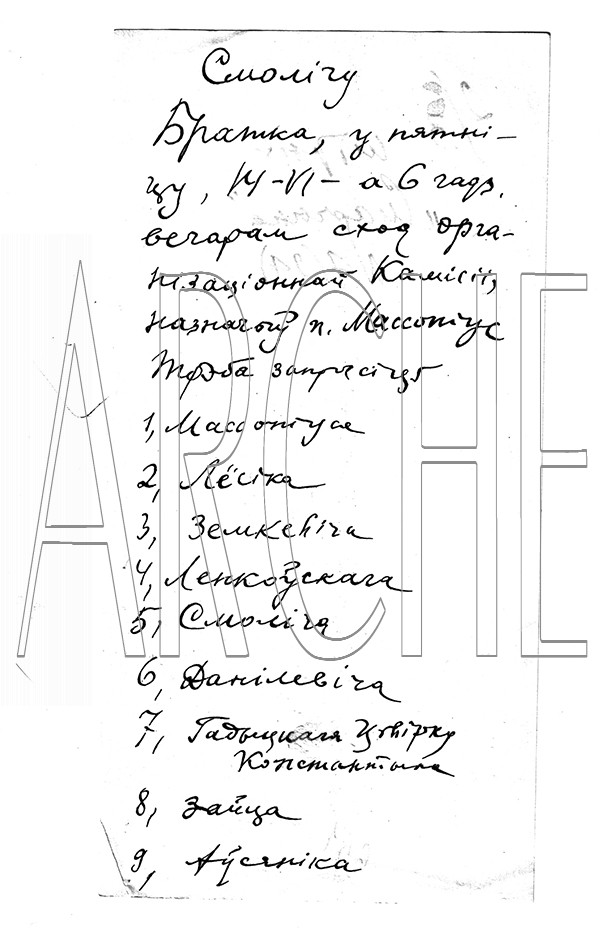 Смолічу
Братка, у пятні-
цу, 14-VI- а 6 гадз.
вечарам сход орга-
нізаціоннай Камісіі,
назначыў п. Массоніус
Трэба запрасіць
1, Массоніуса
2, Лёсіка
3, Земкевіча
4, Ленкоўскага
5, Смоліча
6, Данілевіча
7, Гадыцкага Цвірку
Константына
8, Зайца
9, Аўсяніка
ARCHE